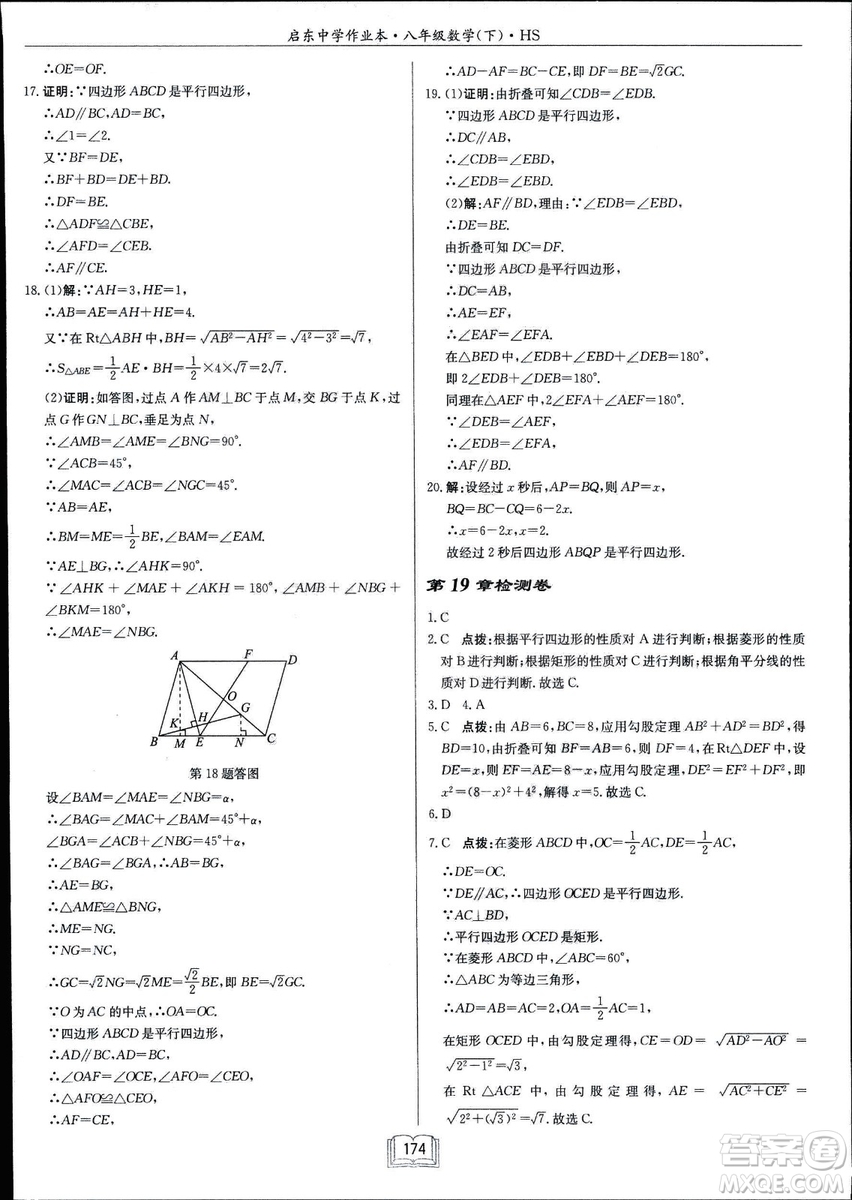 启东中学作业本·八年级数学(下)·HS
∴OE=OF.
17.证明:∵四边形ABCD是平行四边形,
∴AD∥BC,AD=BC.
∴∠1=∠2.
又∵BF=DE,
∴BF+BD=DE+BD.
∴DF=BE.
∴△ADF≌△CBE,
∴∠AFD=∠CEB.
∴AF∥CE.
18.(1)解:∵AH=3,HE=1,
∴AB=AE=AH+HE=4.
又∵在Rt△ABH中,BH=√(AB²-AH²)=√(4²-3²)=√7,
∴S△ABE=1/2AE·BH=1/2×4×√7=2√7.
(2)证明:如答图,过点A作AM⊥BC于点M,交BG于点K,过
点G作GN⊥BC,垂足为点N,
∴∠AMB=∠AME=∠BNG=90°.
∵∠ACB=45°,
∴∠MAC=∠ACB=∠NGC=45°.
∵AB=AE,
∴BM=ME=1/2BE,∠BAM=∠EAM.
∵AE⊥BG,∴∠AHK=90°.
∵∠AHK+∠MAE+∠AKH=180°,∠AMB+∠NBG+
∠BKM=180°,
∴∠MAE=∠NBG.
A F D
O
G
K H
B M E N C
第18题答图
设∠BAM=∠MAE=∠NBG=α,
∴∠BAG=∠MAC+∠BAM=45°+α,
∠BGA=∠ACB+∠NBG=45°+α,
∴∠BAG=∠BGA,
∴AE=BG,
∴△AME≌△BNG,
∴ME=NG.
∵NG=NC,
∴GC=√2NG=√2ME=√2/2BE,即BE=√2GC.
∵O为AC的中点,∴OA=OC.
∵四边形ABCD是平行四边形,
∴AD∥BC,AD=BC,
∴∠OAF=∠OCE,∠AFO=∠CEO,
∴△AFO≌△CEO,
∴AF=CE,
∴AD-AF=BC-CE,即DF=BE=√2GC.
19.(1)证明:由折叠可知∠CDB=∠EDB.
∵四边形ABCD是平行四边形,
∴DC∥AB,
∴∠CDB=∠EBD,
∴∠EDB=∠EBD.
(2)解:AF∥BD,理由:∵∠EDB=∠EBD,
∴DE=BE.
由折叠可知DC=DF.
∵四边形ABCD是平行四边形,
∴DC=AB,
∴AE=EF,
∴∠EAF=∠EFA.
在△BED中,∠EDB+∠EBD+∠DEB=180°,
即2∠EDB+∠DEB=180°.
同理在△AEF中,2∠EFA+∠AEF=180°.
∵∠DEB=∠AEF,
∴∠EDB=∠EFA,
∴AF∥BD.
20.解:设经过x秒后,AP=BQ,则AP=x,
BQ=BC-CQ=6-2x.
∴x=6-2x,x=2.
故经过2秒后四边形ABQP是平行四边形.
第19章检测卷
1.C
2.C 点拨:根据平行四边形的性质对A进行判断;根据菱形的性质
对B进行判断;根据矩形的性质对C进行判断;根据角平分线的性
质对D进行判断.故选C.
3.D 4.A
5.C 点拨:由AB=6,BC=8,应用勾股定理AB²+AD²=BD²,得
BD=10,由折叠知BF=AB=6,则DF=4,在Rt△DEF中,设
DE=x,则EF=AE=8-x,应用勾股定理,DE²=EF²+DF²,即
x²=(8-x)²+4²,解得x=5.故选C.
6.D
7.C 点拨:在菱形ABCD中,OC=1/2AC,DE=1/2AC,
∴DE=OC.
∵DE∥AC,∴四边形OCED是平行四边形.
∵AC⊥BD,
∴平行四边形OCED是矩形.
∵在菱形ABCD中,∠ABC=60°,
∴△ABC为等边三角形,
∴AD=AB=AC=2,OA=1/2AC=1,
在矩形OCED中,由勾股定理得,CE=OD=√(AD²-AO²)=
√(2²-1²)=√3,
在Rt△ACE中,由勾股定理得,AE=√(AC²+CE²)=
√(2²+(√3)²)=√7.故选C.
174
答案圈
MXQE.COM